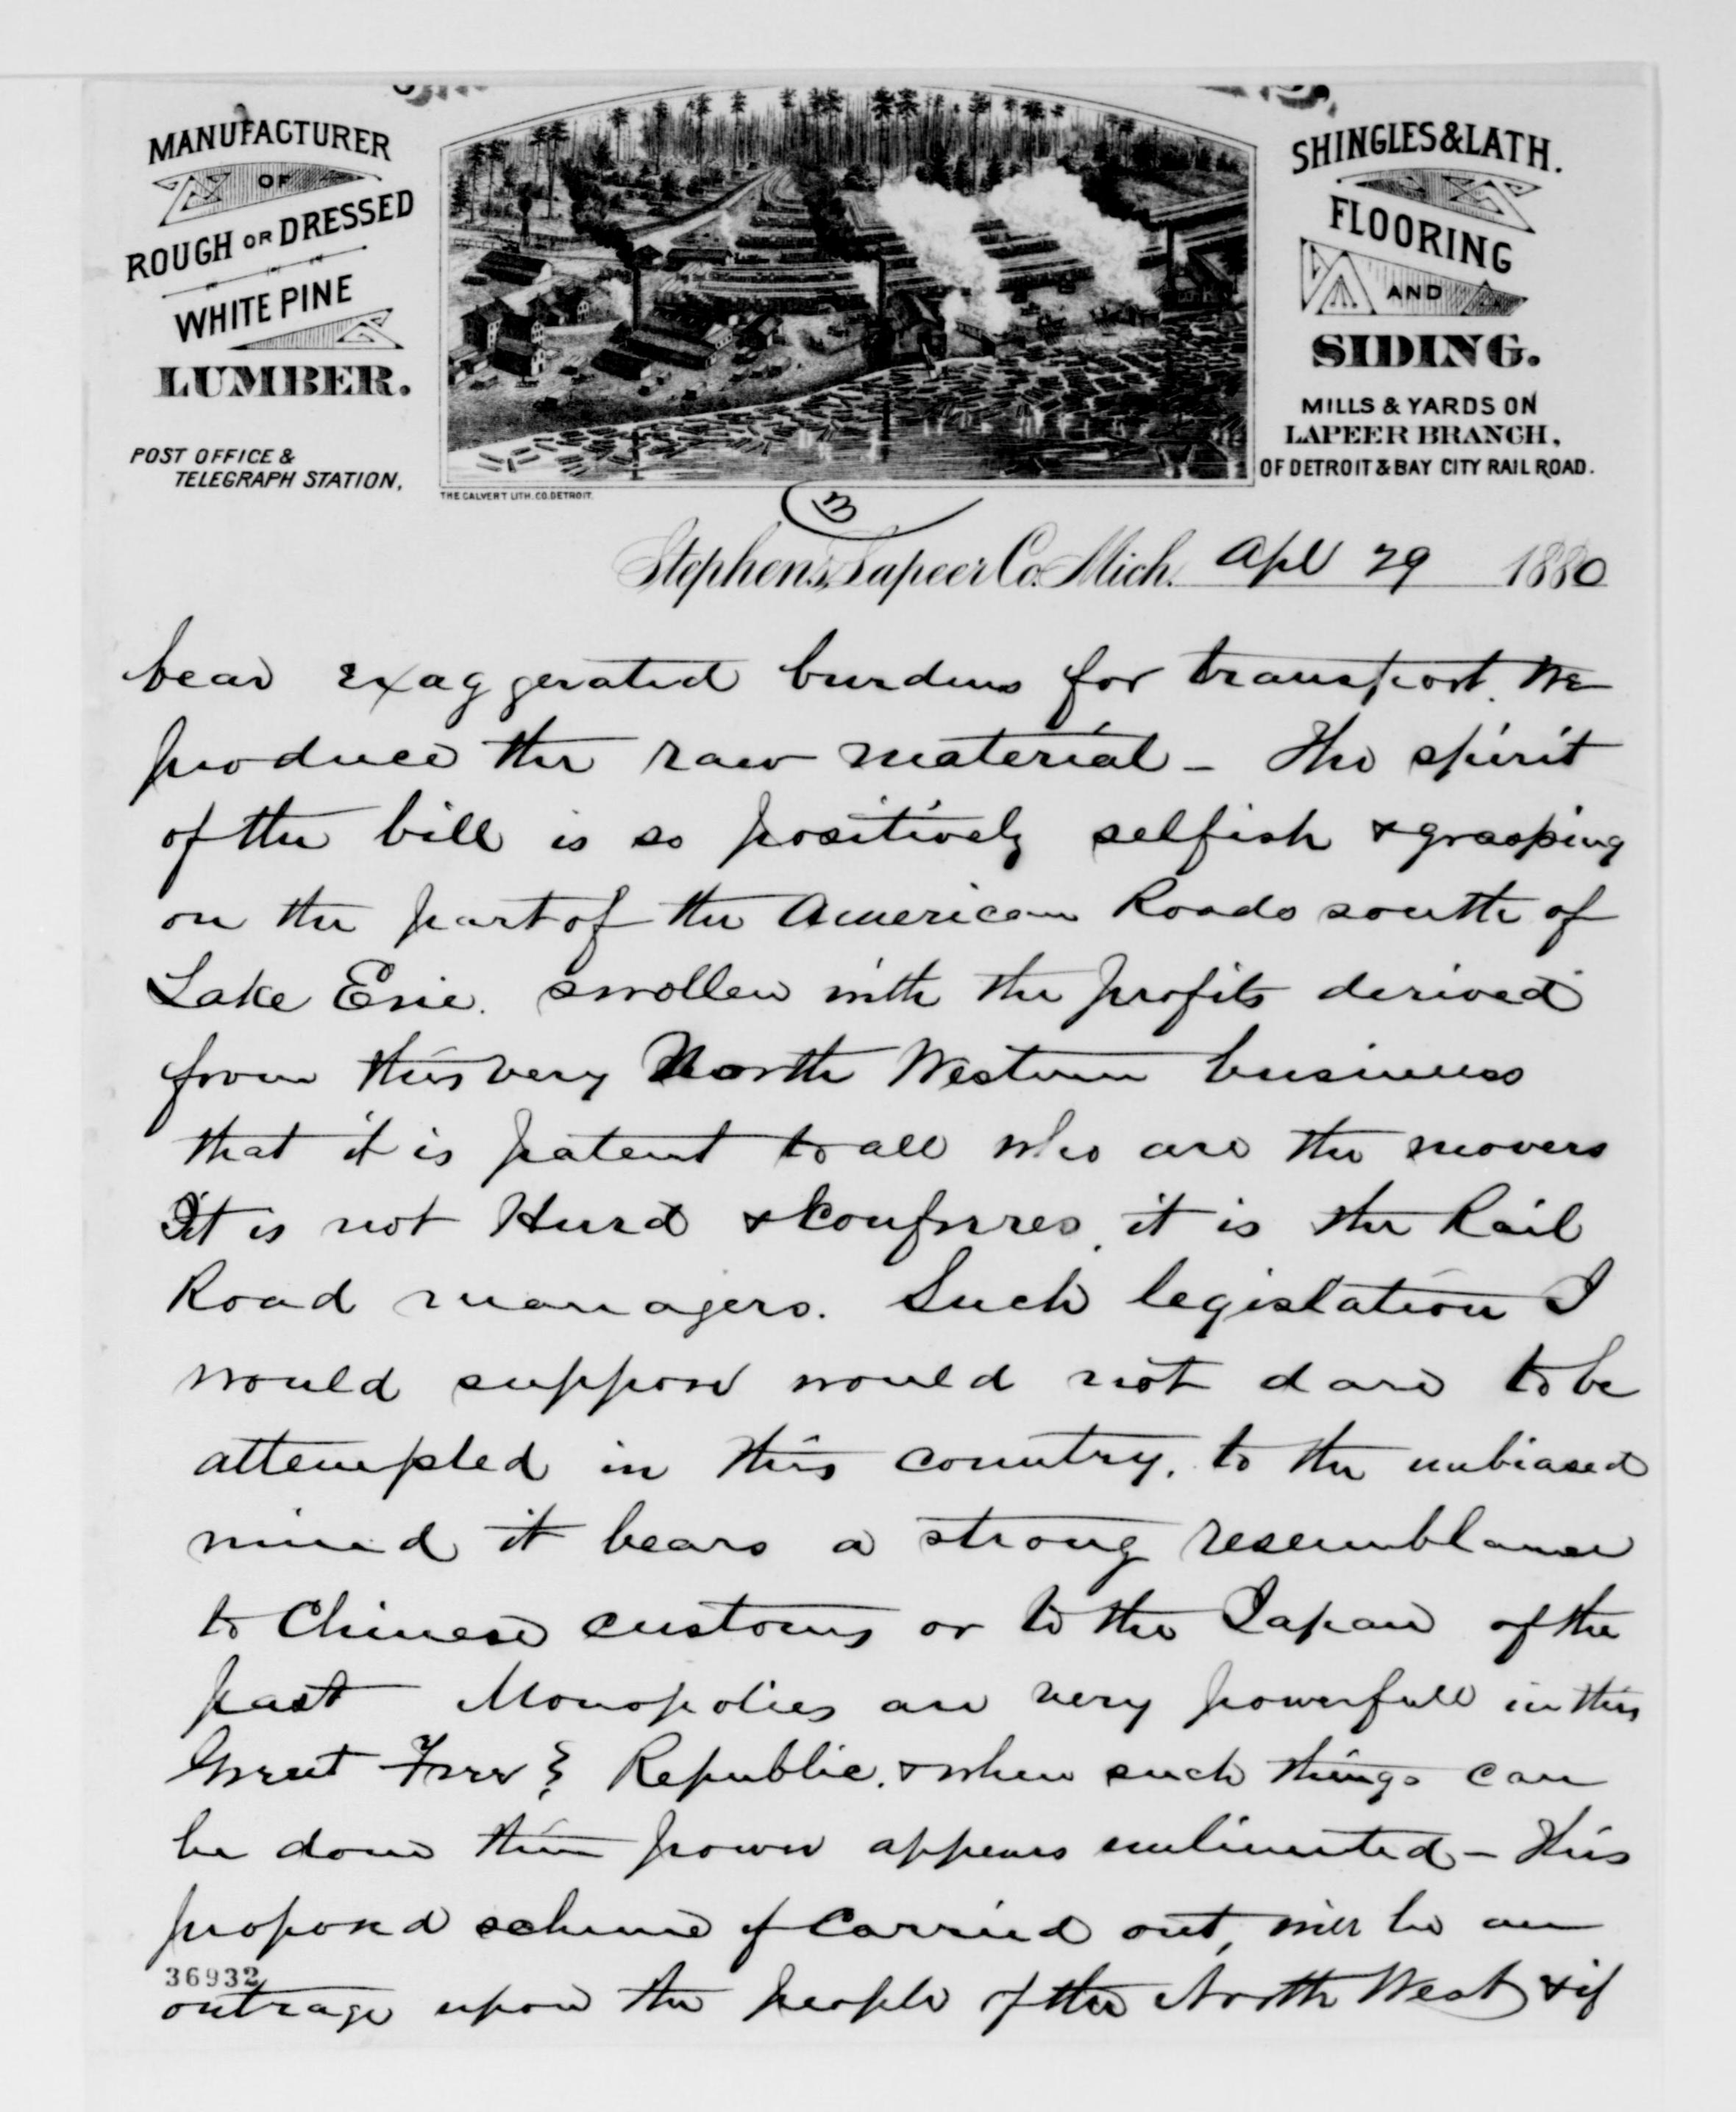 MANUFACTURER
OF
ROUGH OR DRESSED
WHITE PINE
LUMBER.
POST OFFICE &
TELEGRAPH STATION,
SHINGLES & LATH.
FLOORING
AND
SIDING.
MILLS & YARDS ON
LAPEER BRANCH,
OF DETROIT & BAY CITY RAIL ROAD.
THE CALVERT LITH. CO. DETROIT.
(3)
Stephens, Lapeer Co. Mich. Apl 29 1880
bear exaggerated burdens for transport. We
produce the raw material - The spirit
of the bill is so positively selfish & grasping
on the part of the American Roads south of
Lake Erie. swollen with the profits derived
from this very North Western business
that it is patent to all who are the movers
It is not Hurd & Confreres, it is the Rail
Road managers. Such legislation I
would suppose would not dare to be
attempted in this country, to the unbiased
mind it bears a strong resemblance
to Chinese customs or to the Japan of the
past Monopolies are very powerfull in this
Great Free? Republic. & when such things can
be done their power appears unlimited - This
proposed scheme if carried out, will be an
36932
outrage upon the people of the North West & if